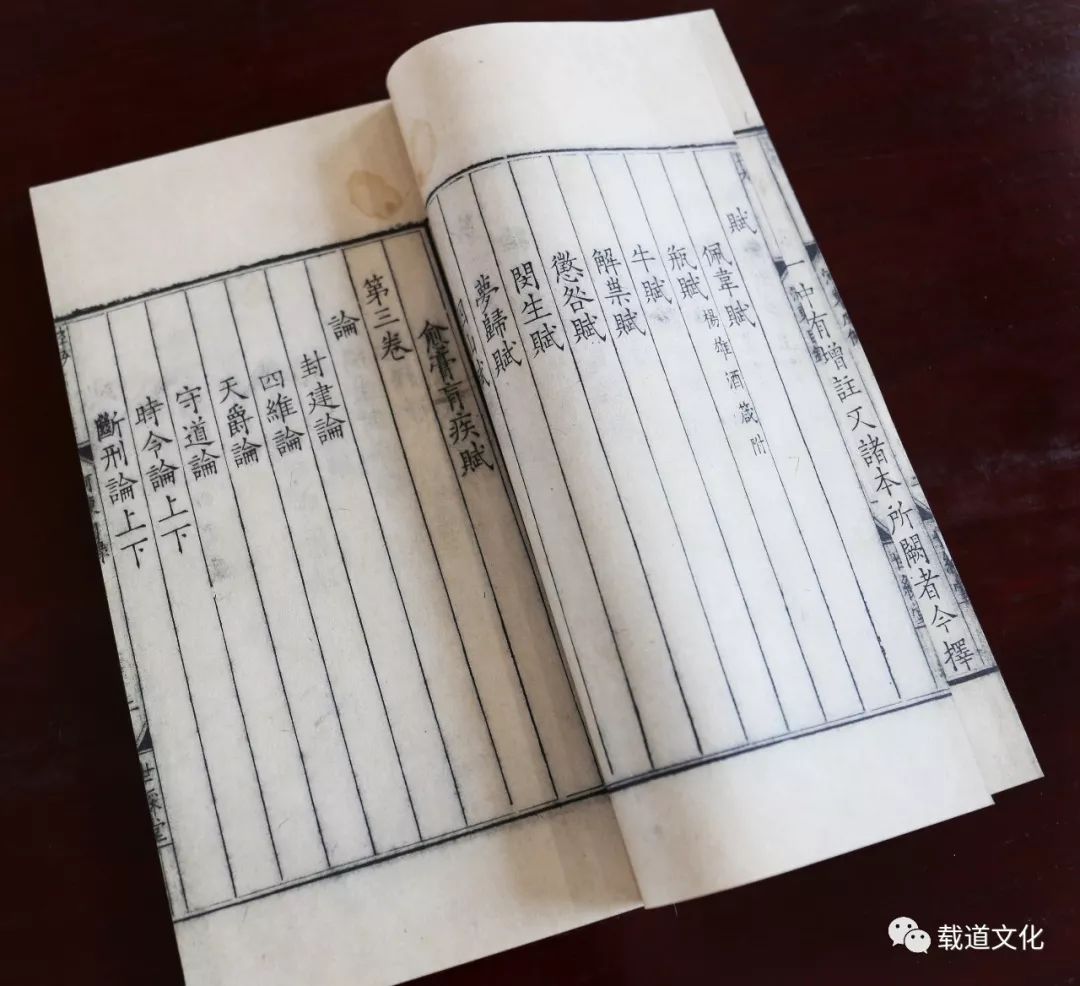 有增註又諸本所闕者今擇
賦
佩韋賦
瓶賦 楊雄酒箴附
牛賦
解祟賦
懲咎賦
閔生賦
夢歸賦
愈膏肓疾賦
第三卷
論
封建論
四維論
天爵論
守道論
時令論上下
斷刑論上下
世綵堂
载道文化